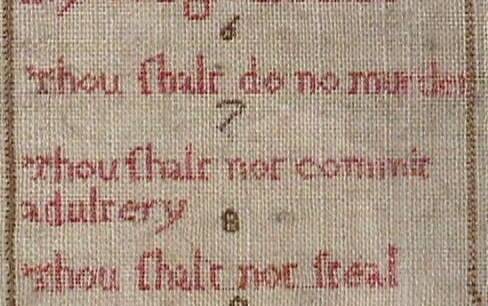 6
Thou ſhalt do no murder
7
Thou ſhalt not commit
adultery
8
Thou ſhalt not ſteal
9